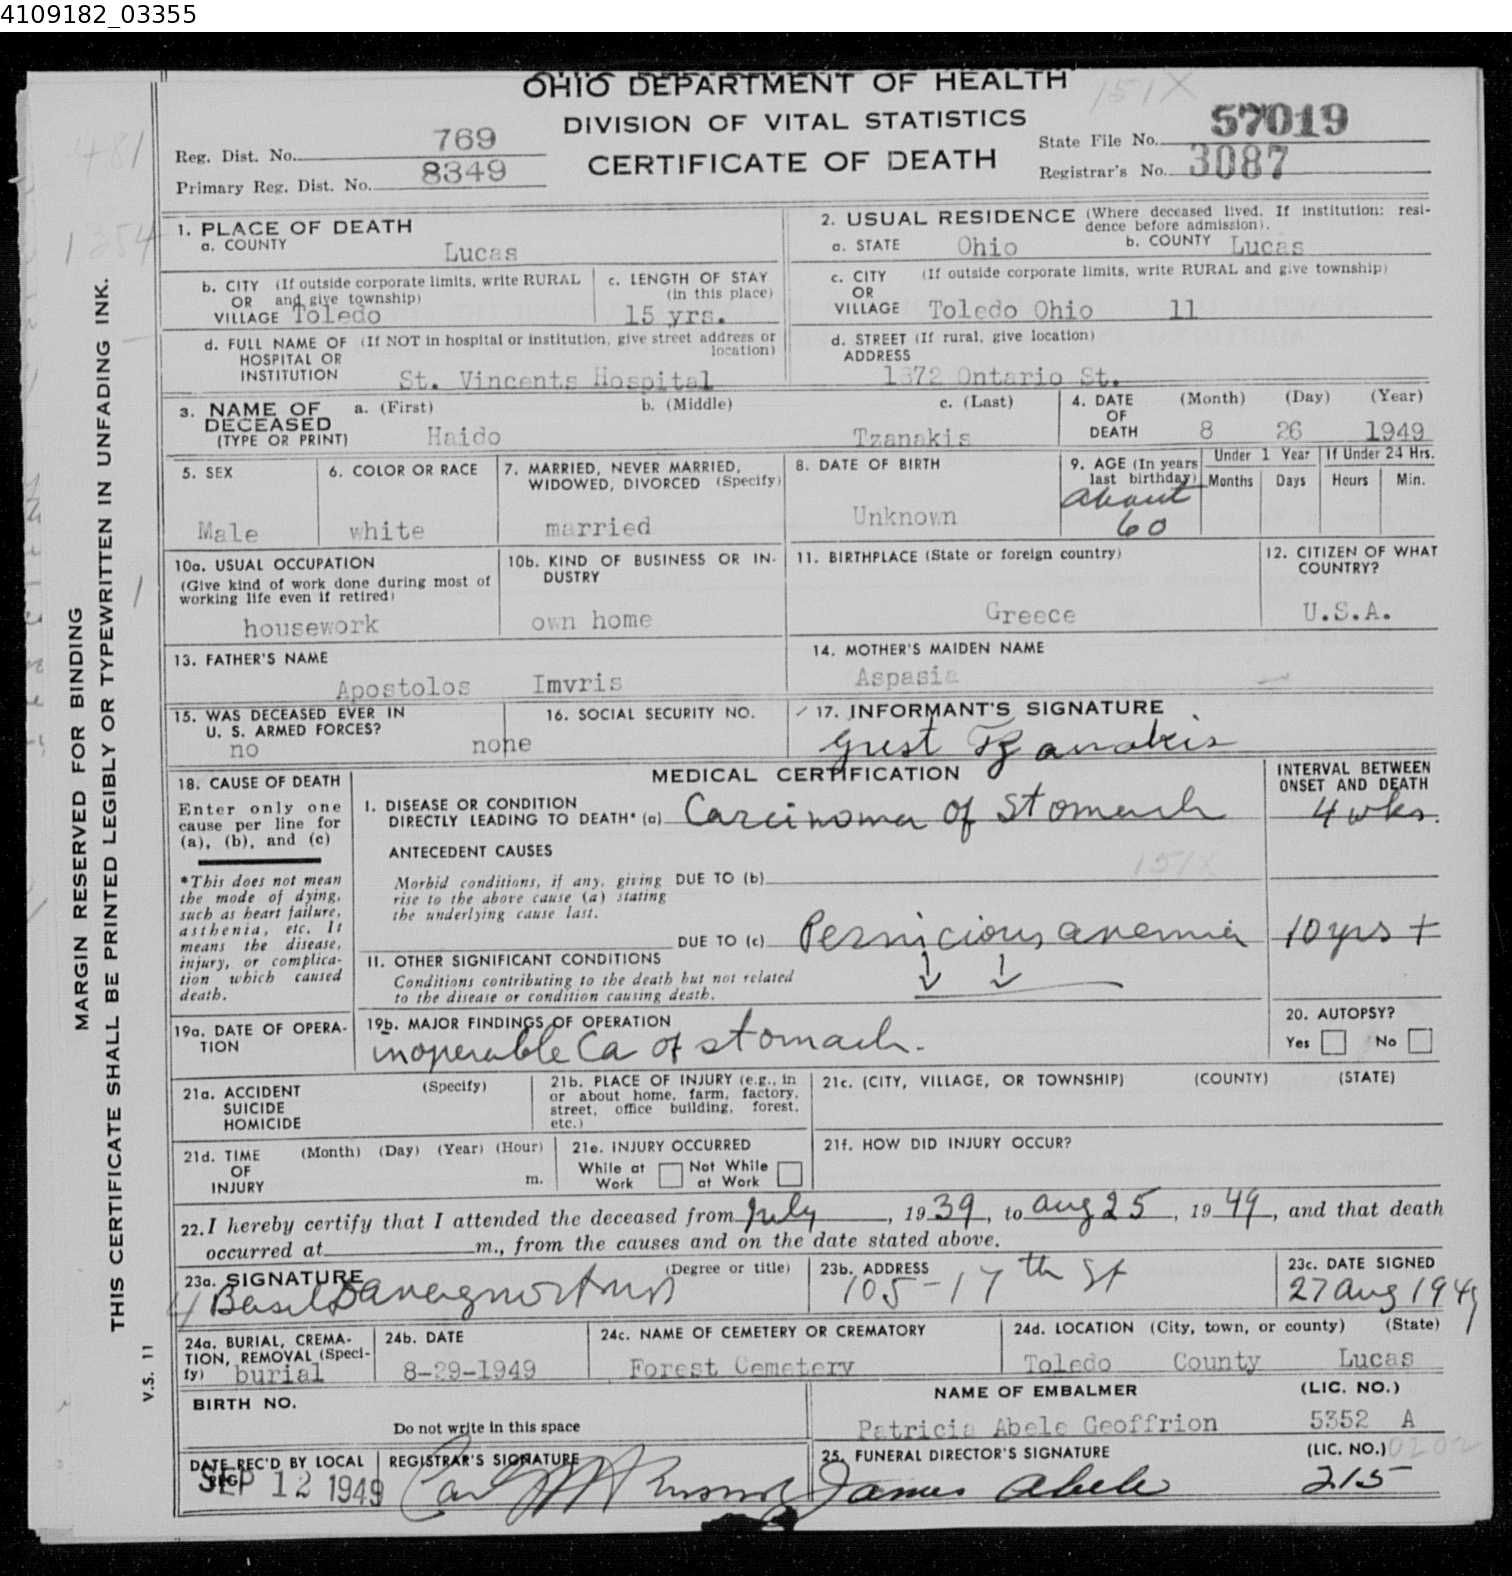 4109182_03355
OHIO DEPARTMENT OF HEALTH
151X
DIVISION OF VITAL STATISTICS
CERTIFICATE OF DEATH
Reg. Dist. No. 769
Primary Reg. Dist. No. 8349
State File No. 57019
Registrar's No. 3087
481
1354
MARGIN RESERVED FOR BINDING
THIS CERTIFICATE SHALL BE PRINTED LEGIBLY OR TYPEWRITTEN IN UNFADING INK.
V.S. 11
1. PLACE OF DEATH
a. COUNTY Lucas
b. CITY (If outside corporate limits, write RURAL
OR and give township)
VILLAGE Toledo
c. LENGTH OF STAY
(in this place)
15 yrs.
d. FULL NAME OF (If NOT in hospital or institution, give street address or
HOSPITAL OR location)
INSTITUTION St. Vincents Hospital
2. USUAL RESIDENCE (Where deceased lived. If institution: resi-
dence before admission).
a. STATE Ohio b. COUNTY Lucas
c. CITY (If outside corporate limits, write RURAL and give township)
OR
VILLAGE Toledo Ohio 11
d. STREET (If rural, give location)
ADDRESS
1372 Ontario St.
3. NAME OF DECEASED
(TYPE OR PRINT)
a. (First) b. (Middle) c. (Last)
Haido Tzanakis
4. DATE OF DEATH (Month) (Day) (Year)
8 26 1949
5. SEX
Male
6. COLOR OR RACE
white
7. MARRIED, NEVER MARRIED,
WIDOWED, DIVORCED (Specify)
married
8. DATE OF BIRTH
Unknown
9. AGE (In years
last birthday)
about
60
Under 1 Year
Months Days
If Under 24 Hrs.
Hours Min.
10a. USUAL OCCUPATION
(Give kind of work done during most of
working life even if retired)
housework
10b. KIND OF BUSINESS OR IN-
DUSTRY
own home
11. BIRTHPLACE (State or foreign country)
Greece
12. CITIZEN OF WHAT
COUNTRY?
U.S.A.
13. FATHER'S NAME
Apostolos Imvris
14. MOTHER'S MAIDEN NAME
Aspasia
15. WAS DECEASED EVER IN
U. S. ARMED FORCES?
no
16. SOCIAL SECURITY NO.
none
17. INFORMANT'S SIGNATURE
Gust Tzanakis
18. CAUSE OF DEATH
Enter only one
cause per line for
(a), (b), and (c)
*This does not mean
the mode of dying,
such as heart failure,
asthenia, etc. It
means the disease,
injury, or complica-
tion which caused
death.
MEDICAL CERTIFICATION
INTERVAL BETWEEN
ONSET AND DEATH
I. DISEASE OR CONDITION
DIRECTLY LEADING TO DEATH* (a) Carcinoma of Stomach 4 wks.
ANTECEDENT CAUSES
151X
Morbid conditions, if any, giving DUE TO (b)
rise to the above cause (a) stating
the underlying cause last.
DUE TO (c) Pernicious anemia 10 yrs +
II. OTHER SIGNIFICANT CONDITIONS
Conditions contributing to the death but not related
to the disease or condition causing death.
19a. DATE OF OPERA-
TION
19b. MAJOR FINDINGS OF OPERATION
inoperable Ca of stomach.
20. AUTOPSY?
Yes No
21a. ACCIDENT (Specify)
SUICIDE
HOMICIDE
21b. PLACE OF INJURY (e.g., in
or about home, farm, factory,
street, office building, forest,
etc.)
21c. (CITY, VILLAGE, OR TOWNSHIP) (COUNTY) (STATE)
21d. TIME (Month) (Day) (Year) (Hour)
OF
INJURY m.
21e. INJURY OCCURRED
While at Work Not While at Work
21f. HOW DID INJURY OCCUR?
22. I hereby certify that I attended the deceased from July, 1939, to Aug 25, 1949, and that death
occurred at m., from the causes and on the date stated above.
23a. SIGNATURE (Degree or title)
Basil
23b. ADDRESS
105-17th St
23c. DATE SIGNED
27 Aug 1949
24a. BURIAL, CREMA-
TION, REMOVAL (Speci-
fy) burial
24b. DATE
8-29-1949
24c. NAME OF CEMETERY OR CREMATORY
Forest Cemetery
24d. LOCATION (City, town, or county) (State)
Toledo County Lucas
BIRTH NO.
Do not write in this space
NAME OF EMBALMER (LIC. NO.)
Patricia Abele Geoffrion 5352 A
DATE REC'D BY LOCAL
REG.
SEP 12 1949
REGISTRAR'S SIGNATURE
25. FUNERAL DIRECTOR'S SIGNATURE (LIC. NO.) 0202
James Abele 215